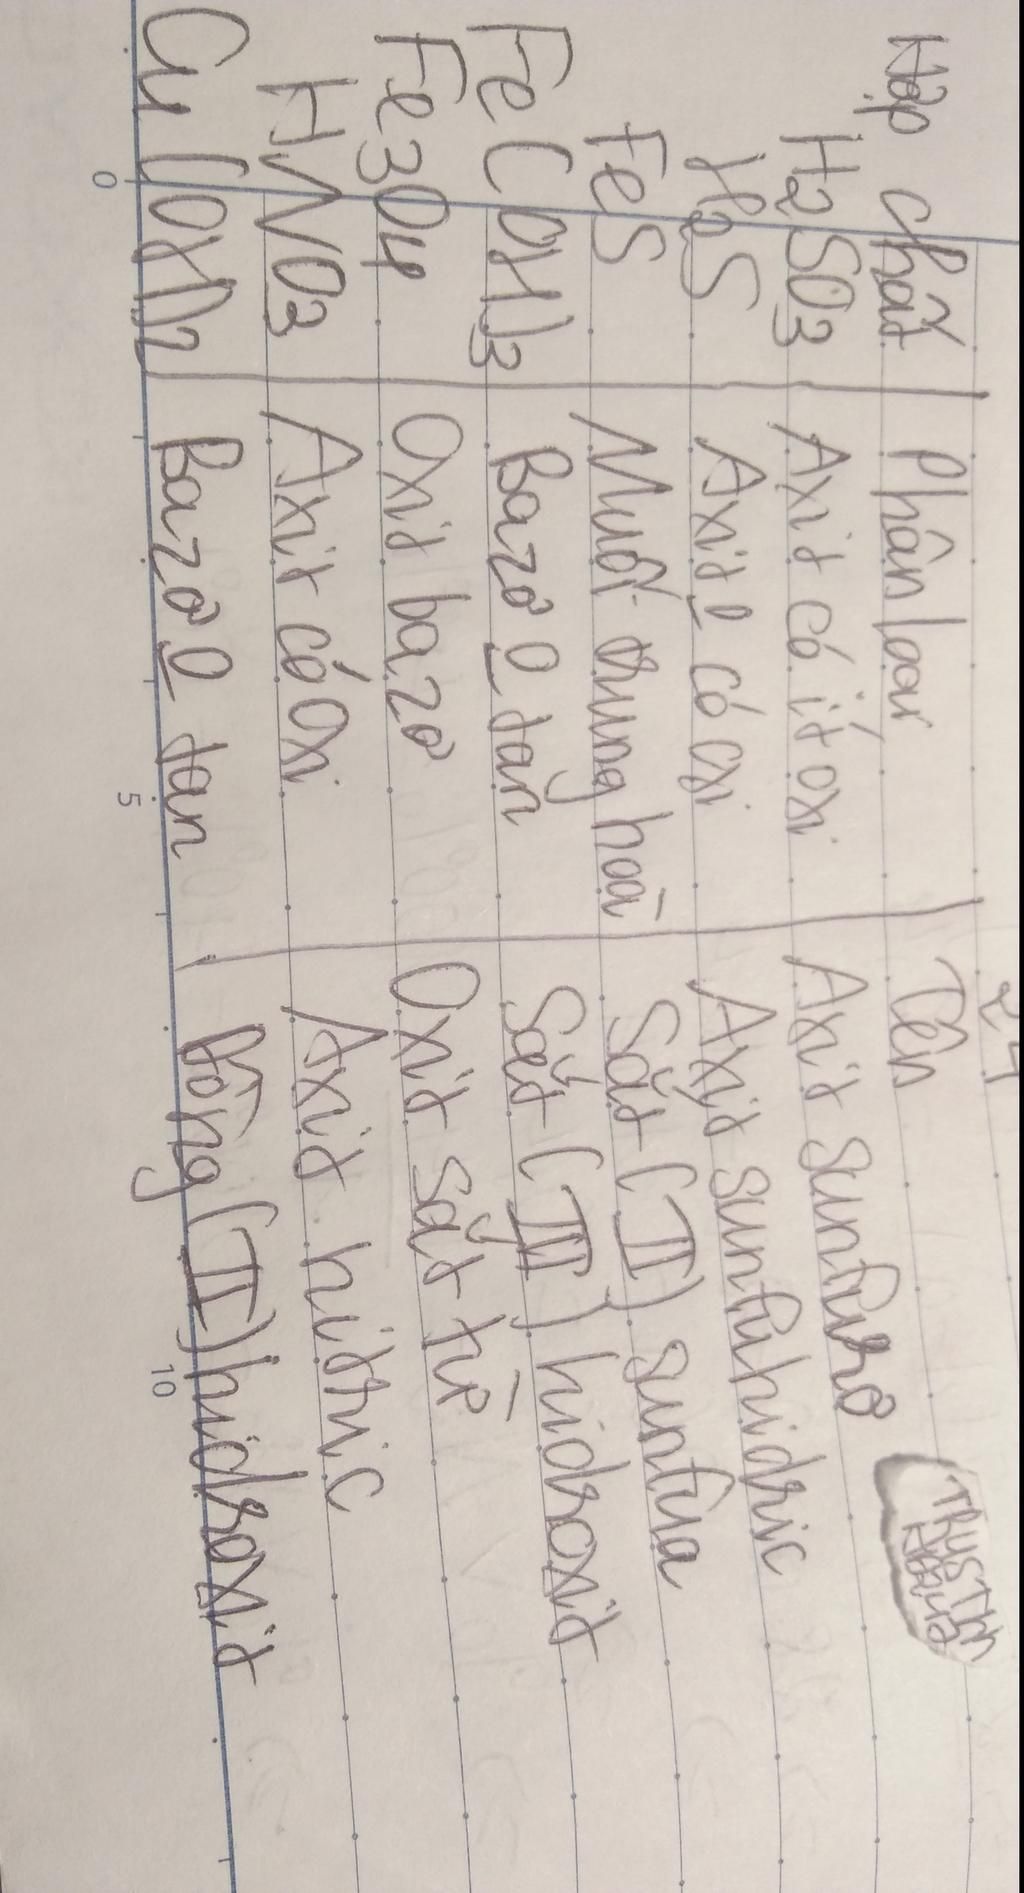 Hợp chất Phân loại Tên
H2SO3 Axit có ít oxi Axit sunfurơ
H2S Axit 0 có oxi Axit sunfuhidric
FeS Muối trung hoà Sắt (II) sunfua
Fe(OH)3 Bazơ 0 tan Sắt (III) hidroxit
Fe3O4 Oxit bazơ Oxit sắt từ
HNO3 Axit có oxi Axit nitric
Cu(OH)2 Bazơ 0 tan Đồng (II) hidroxit
0 5 10